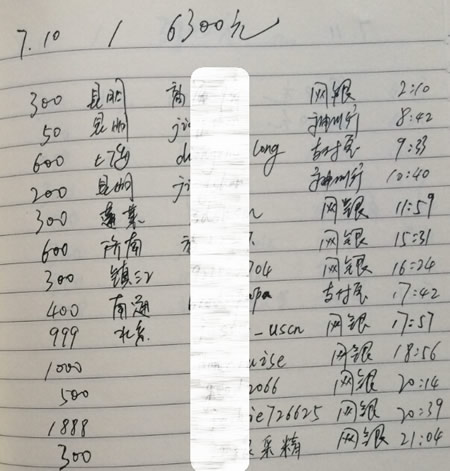 7.10 1 6300元
300 昆明 网银 2:10
50 昆明 神州行 8:42
600 上海 long 支付宝 9:33
200 昆明 神州行 10:40
300 蓬莱 网银 11:59
600 济南 网银 15:31
300 镇江 704 网银 16:24
400 南通 支付宝 17:42
999 北京 _uscn 网银 17:57
1000 uise 网银 18:56
500 2066 网银 20:14
1888 ie726625 网银 20:39
300 采精 网银 21:04